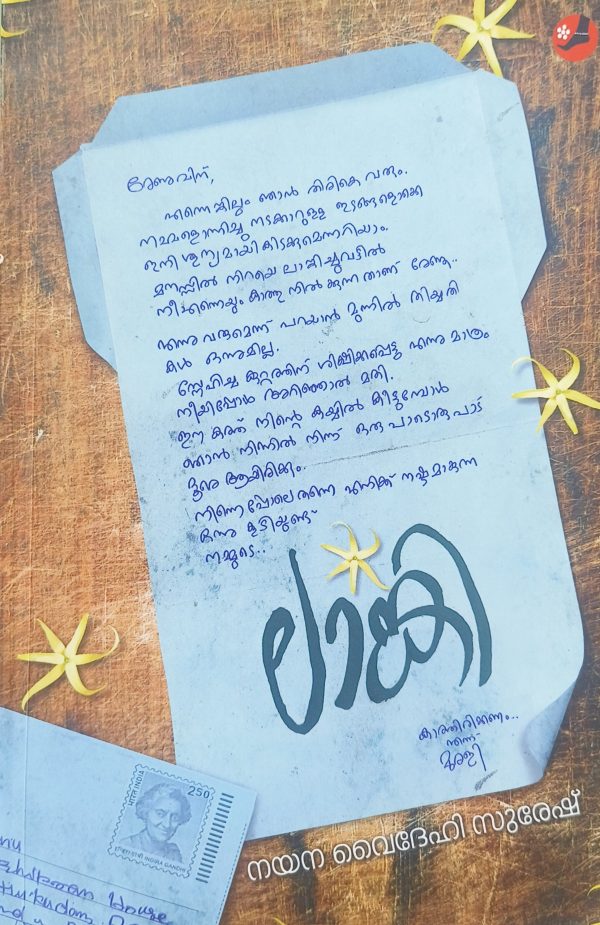 രേണുവിന്,
എന്നെങ്കിലും ഞാൻ തിരികെ വരും.
നമ്മളൊന്നിച്ചു നടക്കാറുള്ള ഇടങ്ങളൊക്കെ
ഇനി ശൂന്യമായി കിടക്കുമെന്നറിയാം.
മനസ്സിൽ നിറയെ ലാങ്കിച്ചുവട്ടിൽ
നീയെന്നെയും കാത്തു നിൽക്കുന്നതാണ് രേണൂ..
എന്നു വരുമെന്ന് പറയാൻ മുന്നിൽ തിയ്യതി
കൾ ഒന്നുമില്ല.
സ്നേഹിച്ച കുറ്റത്തിന് ശിക്ഷിക്കപ്പെട്ടു എന്നു മാത്രം
നീയിപ്പോൾ അറിഞ്ഞാൽ മതി.
ഈ കത്ത് നിന്റെ കയ്യിൽ കിട്ടുമ്പോൾ
ഞാൻ നിന്നിൽ നിന്ന് ഒരുപാടൊരുപാട്
ദൂരെ ആയിരിക്കും.
നിന്നെപ്പോലെ തന്നെ എനിക്ക് നഷ്ടമാകുന്ന
ഒന്നു കൂടിയുണ്ട്
നമ്മുടെ..
ലാങ്കി
കാത്തിരിക്കണം..
എന്ന്
മുരളി
भारत INDIA
250
INDIRA GANDHI
House
നയന വൈദേഹി സുരേഷ്